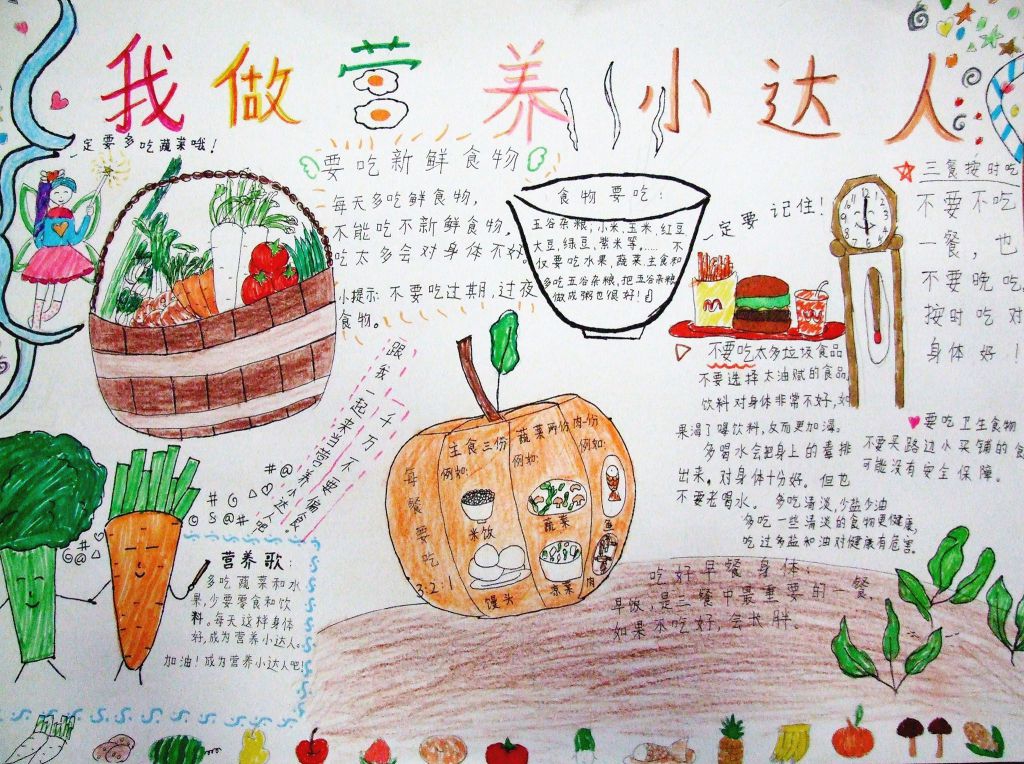 我做营养小达人
一定要多吃蔬菜哦！
要吃新鲜食物
每天多吃鲜食物，
不能吃不新鲜食物，
吃太多会对身体不好。
小提示：不要吃过期，过夜
食物。
食物要吃：
五谷杂粮，小米、玉米、红豆
大豆、绿豆、紫米等，……不
仅要吃水果，蔬菜主食和
多吃五谷杂粮，把五谷杂粮
做成粥也很好！
一定要记住！
三食按时吃
不要不吃
一餐，也
不要晚吃
按时吃对
身体好！
不要吃太多垃圾食品
不要选择太油腻的食品，
饮料对身体非常不好，如
果渴了喝饮料，反而更加渴。
多喝水会把身上的毒排
出来，对身体十分好。但也
不要老喝水。多吃清淡，少盐少油
多吃一些清淡的食物更健康，
吃过多盐和油对健康有危害。
要吃卫生食物
不要买路边小买铺的食
可能没有安全保障。
跟我一起来当营养小达人吧！
千万不要偏食！
#@
#@
营养歌：
多吃蔬菜和水
果，少要零食和饮
料。每天这样身体
好，成为营养小达人。
加油！成为营养小达人吧！
每餐要吃
3:2:1
主食三份
例如：
米饭
馒头
蔬菜两份
例如：
蔬菜
肉一份
例如：
鱼
肉
吃好早餐身体：
早饭，是三餐中最重要的一餐，
如果不吃好，会长胖。